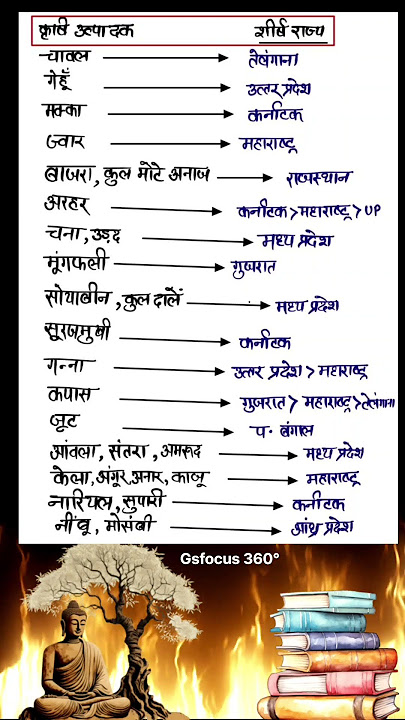 कृषि उत्पादक शीर्ष राज्य
चावल → तेलंगाना
गेहूँ → उत्तर प्रदेश
मक्का → कर्नाटक
ज्वार → महाराष्ट्र
बाजरा, कुल मोटे अनाज → राजस्थान
अरहर → कर्नाटक > महाराष्ट्र > UP
चना, उड़द → मध्य प्रदेश
मूंगफली → गुजरात
सोयाबीन, कुल दालें → मध्य प्रदेश
सूरजमुखी → कर्नाटक
गन्ना → उत्तर प्रदेश > महाराष्ट्र
कपास → गुजरात > महाराष्ट्र > तेलंगाना
जूट → प. बंगाल
आंवला, संतरा, अमरूद → मध्य प्रदेश
केला, अंगूर, अनार, काजू → महाराष्ट्र
नारियल, सुपारी → कर्नाटक
नींबू, मोसंबी → आंध्र प्रदेश
Gsfocus 360°